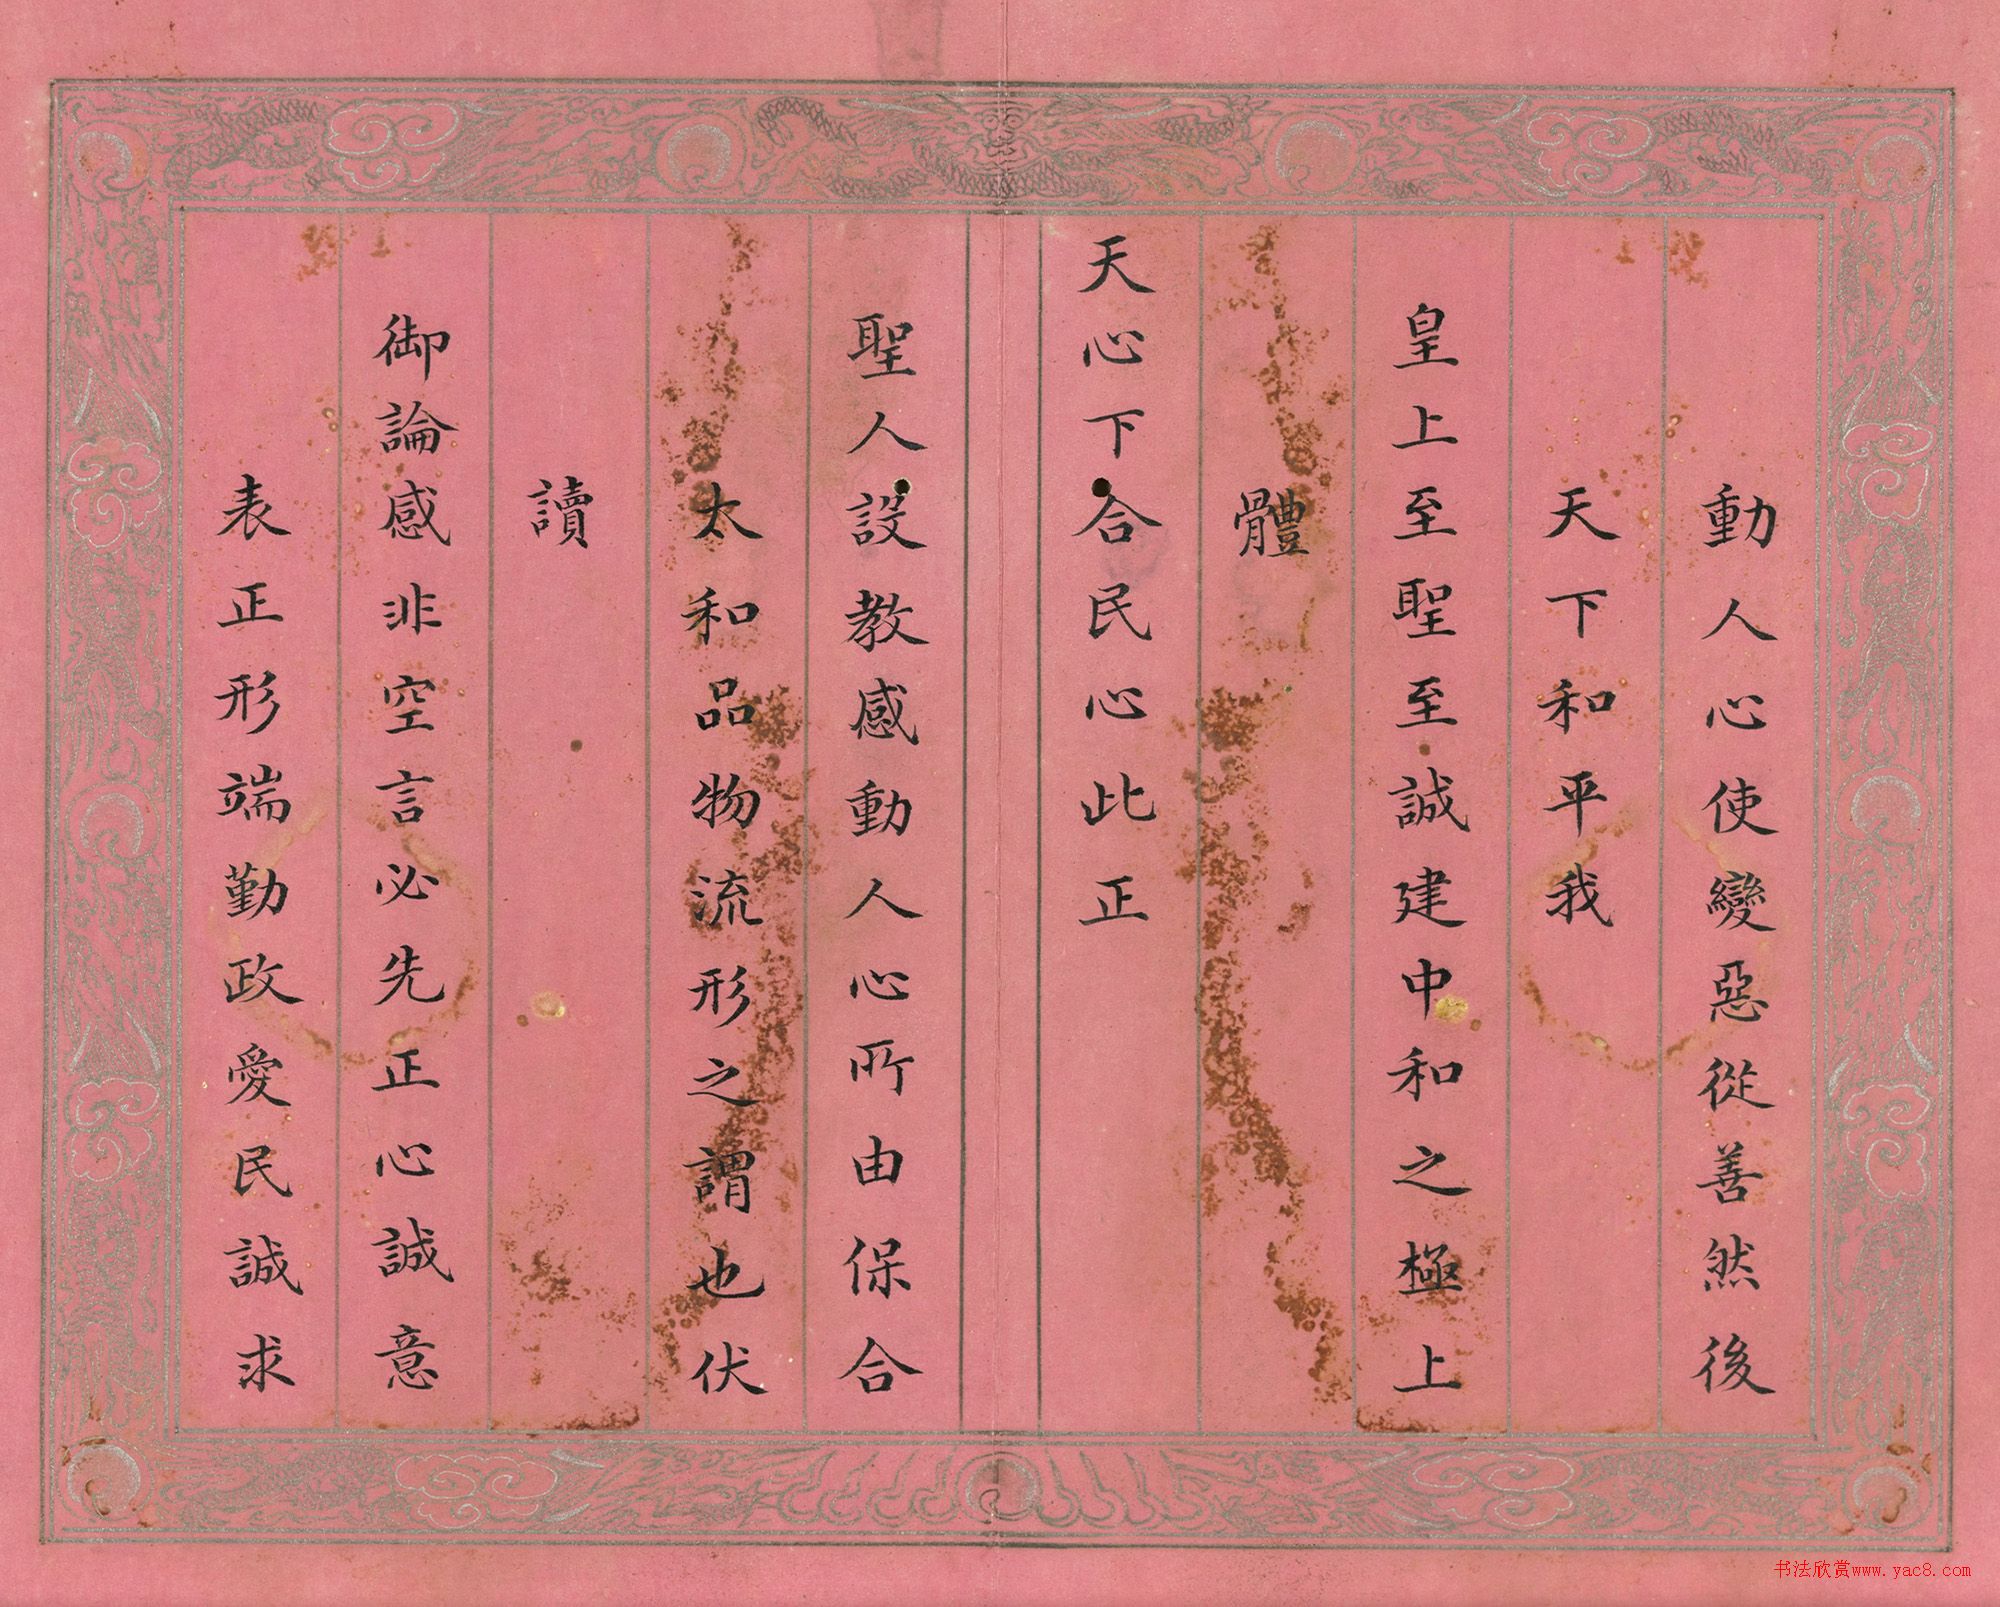 動人心使變惡從善然後
天下和平我
皇上至聖至誠建中和之極上
體
天心下合民心此正
聖人設教感動人心所由保合
太和品物流形之謂也伏
讀
御論感非空言必先正心誠意
表正形端勤政愛民誠求
书法欣赏www.yac8.com